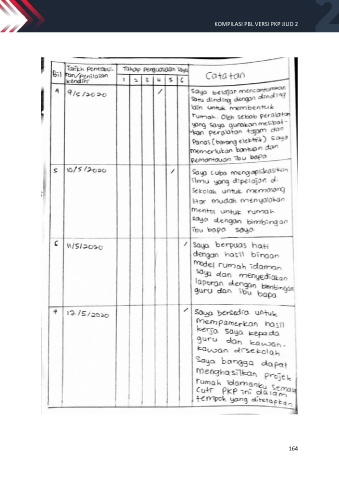 KOMPILASI PBL VERSI PKP JILID 2
Bil
Tarikh Pentaksi-
ran/penilaian
kendiri
Tahap Penguasaan Saya
1 2 3 4 5 6
Catatan
4 9/5/2020 /
Saya belajar mencantumkan
satu dinding dengan dinding
lain untuk membentuk
rumah. Oleh sebab peralatan
yang saya gunakan melibat-
kan peralatan tajam dan
Panas (barang elektrik) saya
memerlukan bantuan dan
pemantauan Ibu bapa
5 10/5/2020 /
Saya cuba mengaplikasikan
ilmu yang dipelajari di
sekolah untuk memasang
litar mudah menyalakan
mentol untuk rumah
saya dengan bimbingan
ibu bapa saya
6 11/5/2020 /
Saya berpuas hati
dengan hasil binaan
model rumah idaman
saya dan menyediakan
laporan dengan bimbingan
guru dan Ibu bapa
7 12/5/2020 /
Saya bersedia untuk
mempamerkan hasil
kerja saya kepada
guru dan kawan-
kawan disekolah
Saya bangga dapat
menghasilkan projek
rumah idamanku semasa
cuti PKP ini dalam
tempoh yang ditetapkan
164